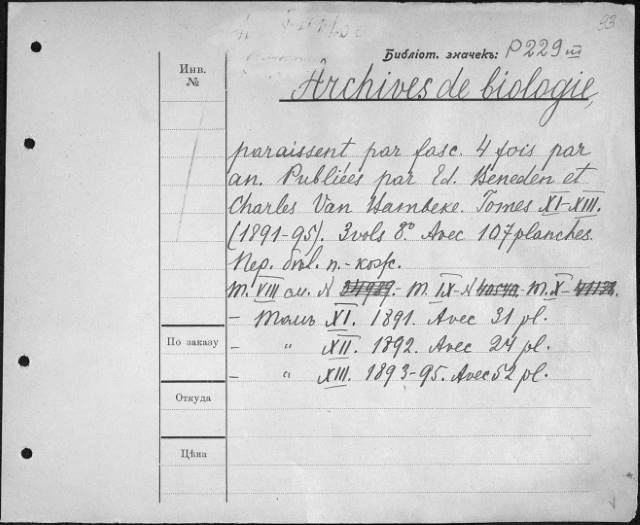 93
Библіот. значекъ: P229 III
Инв.
№
Archives de biologie,
paraissent par fasc. 4 fois par
an. Publiées par Ed. Beneden et
Charles Van Bambeke. Tomes XI-XIII.
(1891-95). 3 vols 8° Avec 107 planches.
Пер. бібл. п.-
Т. VIII см. N - Т. IX - N - Т. X -
- Томъ XI. 1891. Avec 31 pl.
По заказу
- " XII. 1892. Avec 24 pl.
- " XIII. 1893-95. Avec 52 pl.
Откуда
Цѣна